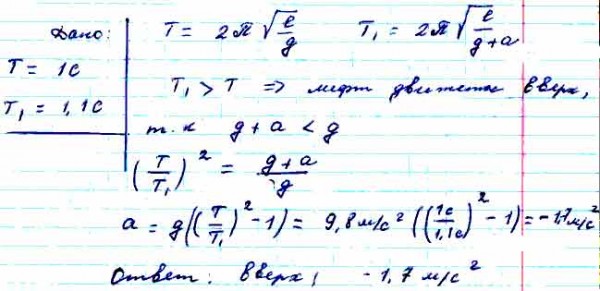 Дано:
T = 1с
T₁ = 1,1с
T = 2π√(ℓ/g) T₁ = 2π√(ℓ/(g+a))
T₁ > T => лифт движется вверх,
т.к g + a < g
(T/T₁)² = (g+a)/g
a = g((T/T₁)² - 1) = 9,8 м/с² ((1с/1,1с)² - 1) = -1,7 м/с²
Ответ: вверх, -1,7 м/с²